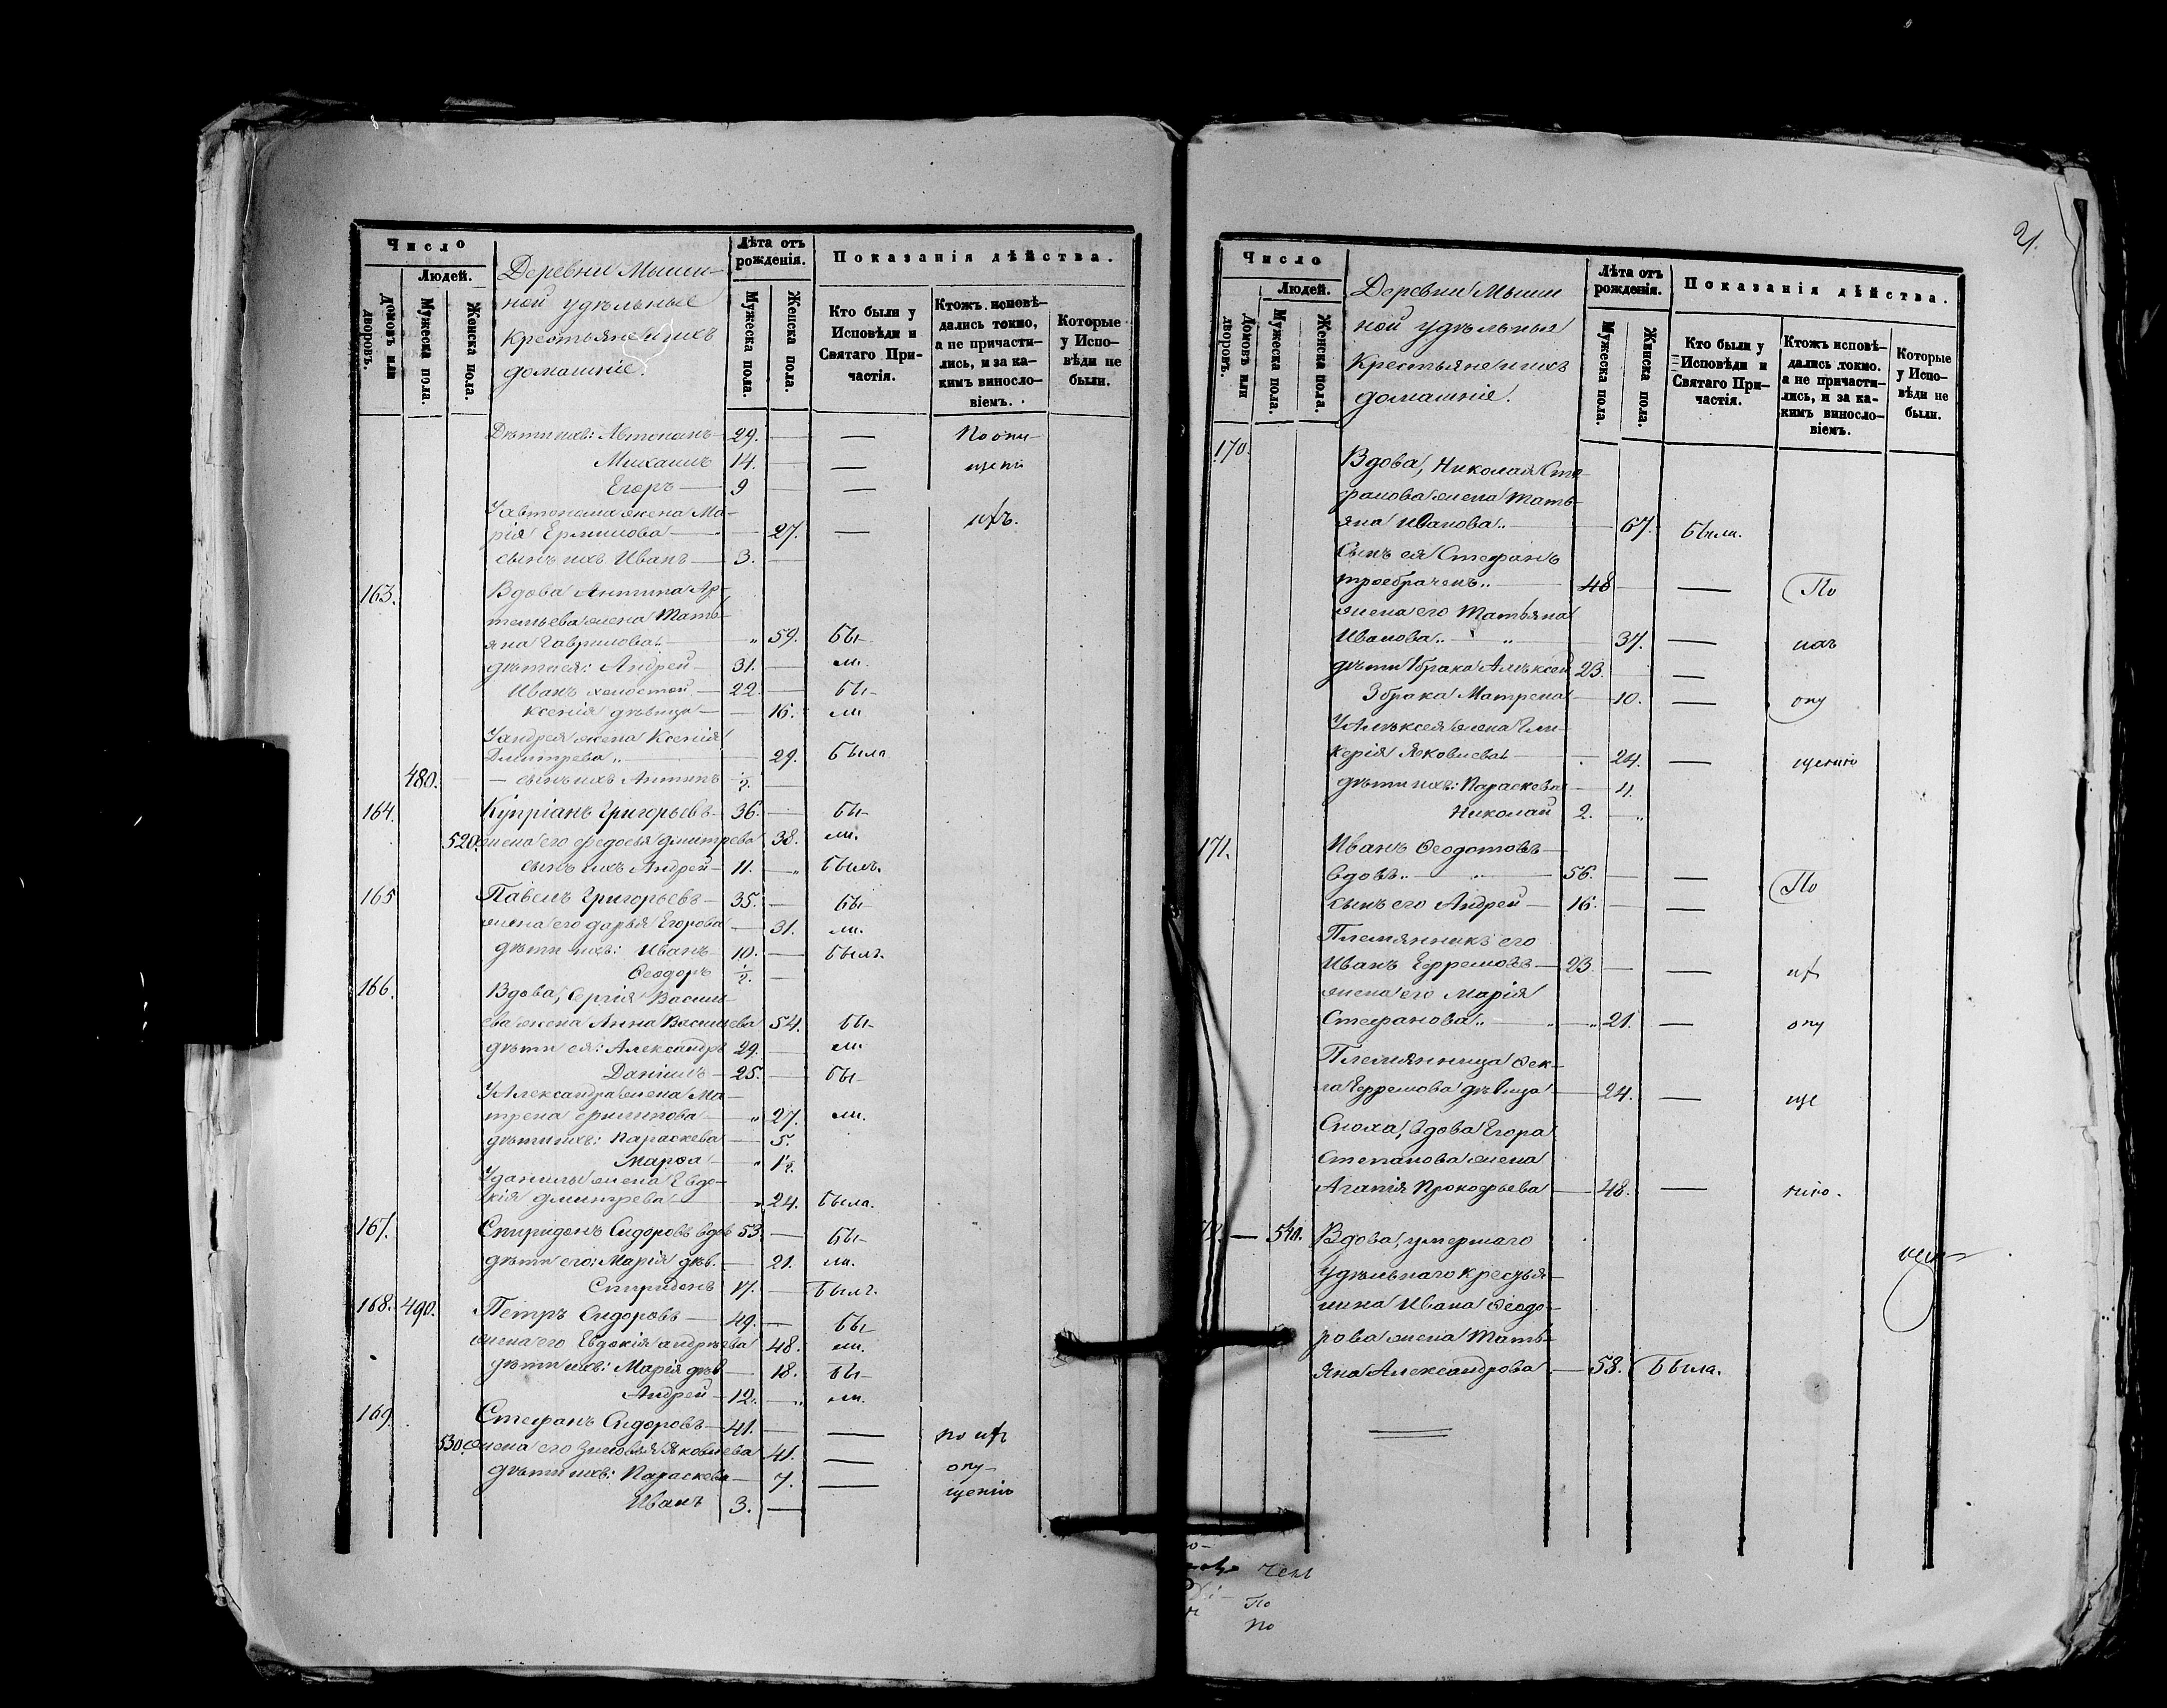 Число
Людей.
Домовъ или дворовъ.
Мужеска пола.
Женска пола.
Деревни Мыши-
ной удѣльные
Крестьяне и ихъ
домашніе.
Лѣта отъ рожденія.
Мужеска пола.
Женска пола.
Показанія дѣйства.
Кто были у Исповѣди и Святаго Причастія.
Ктожъ исповѣ-
дались токмо,
а не причасти-
лись, и за ка-
кимъ виносло-
віемъ.
Которые
у Испо-
вѣди не
были.
Дѣти ихъ: Автономъ 29. — По опу-
Михаилъ 14. — щенію
Егоръ 9 —
У Автонома жена Ма-
рія Ермилова 27. —
сынъ ихъ Иванъ 3. —
163. Вдова Антипа Ар-
темьева жена Тать-
яна Гаврилова 59. бы-
дѣти ея: Андрей 31. — ли.
Иванъ холостой 22. — бы-
Ксенія дѣвица — 16. ли
У Андрея жена Ксенія
Дмитрева 29. была
480. — сынъ ихъ Антипъ ½. —
164. Купріанъ Григорьевъ 36. — бы-
520. жена его Федосья Дмитрева 38. ли.
сынъ ихъ Андрей 11. — былъ.
165 Павелъ Григорьевъ 35. — бы-
жена его Дарья Егорова — 31. ли.
дѣти ихъ: Иванъ 10. — былъ.
Ѳеодоръ ½. —
166. Вдова, Сергія Василь-
ева жена Анна Васильева 54. бы-
дѣти ея: Александръ 29. — ли
Даніилъ 25. — бы-
У Александра жена Ма-
трена Филипова 27. ли.
дѣти ихъ: Параскева 5.
Марѳа 1½.
У Данилы жена Евдо-
кія Дмитрева 24. была.
167. Спиридонъ Сидоровъ вдов 53. — бы-
дѣти его: Марія дѣв. 21. ли.
Спиридонъ 17. — былъ.
168. 490. Петръ Сидоровъ 49. — бы-
жена его Евдокія Андрѣева 48. ли.
дѣти ихъ: Марія дѣв 18. бы-
Андрей 12. — ли.
169. Стефанъ Сидоровъ 41. —
530. жена его Зиновья Яковлева 41. — опу-
дѣти ихъ: Параскева 7. — щенію
Иванъ 3. —
21.
Число
Людей.
Домовъ или дворовъ.
Мужеска пола.
Женска пола.
Деревни Мыши
ной удѣльныя
Крестьяне и ихъ
домашніе.
Лѣта отъ рожденія.
Мужеска пола.
Женска пола.
Показанія дѣйства.
Кто были у Исповѣди и Святаго Причастія.
Ктожъ исповѣ-
дались токмо.
а не причасти-
лись, и за ка-
кимъ виносло-
віемъ.
Которые
у Испо-
вѣди не
были.
170. Вдова, Николая Сте
фанова жена Тать-
яна Иванова 67. были.
Сынъ ея Стефанъ
троебраченъ 48 — По
жена его Татьяна
Иванова 37. —
дѣти 1 брака Алѣксей 23. —
3 брака Матрена 10. — опу
У Алѣксея жена Гли-
керія Яковлева 24. — щенію
дѣти ихъ: Параскева 4.
Николай 2. —
171. Иванъ Ѳеодотовъ
вдовъ 56. — По
сынъ его Андрей 16. —
Племянникъ его
Иванъ Ефремовъ 23. —
жена его Марія
Стефанова 21. — опу
Племянница Ѳек-
ла Ефремова дѣвица 24. — ще
Сноха, вдова Егора
Степанова жена
Агапія Прокофьева 48. — нію.
— 540. Вдова, умершаго
Удѣльнаго кресья-
нина Ивана Ѳеодо-
рова жена Тать-
яна Александрова 58. была.
По
по